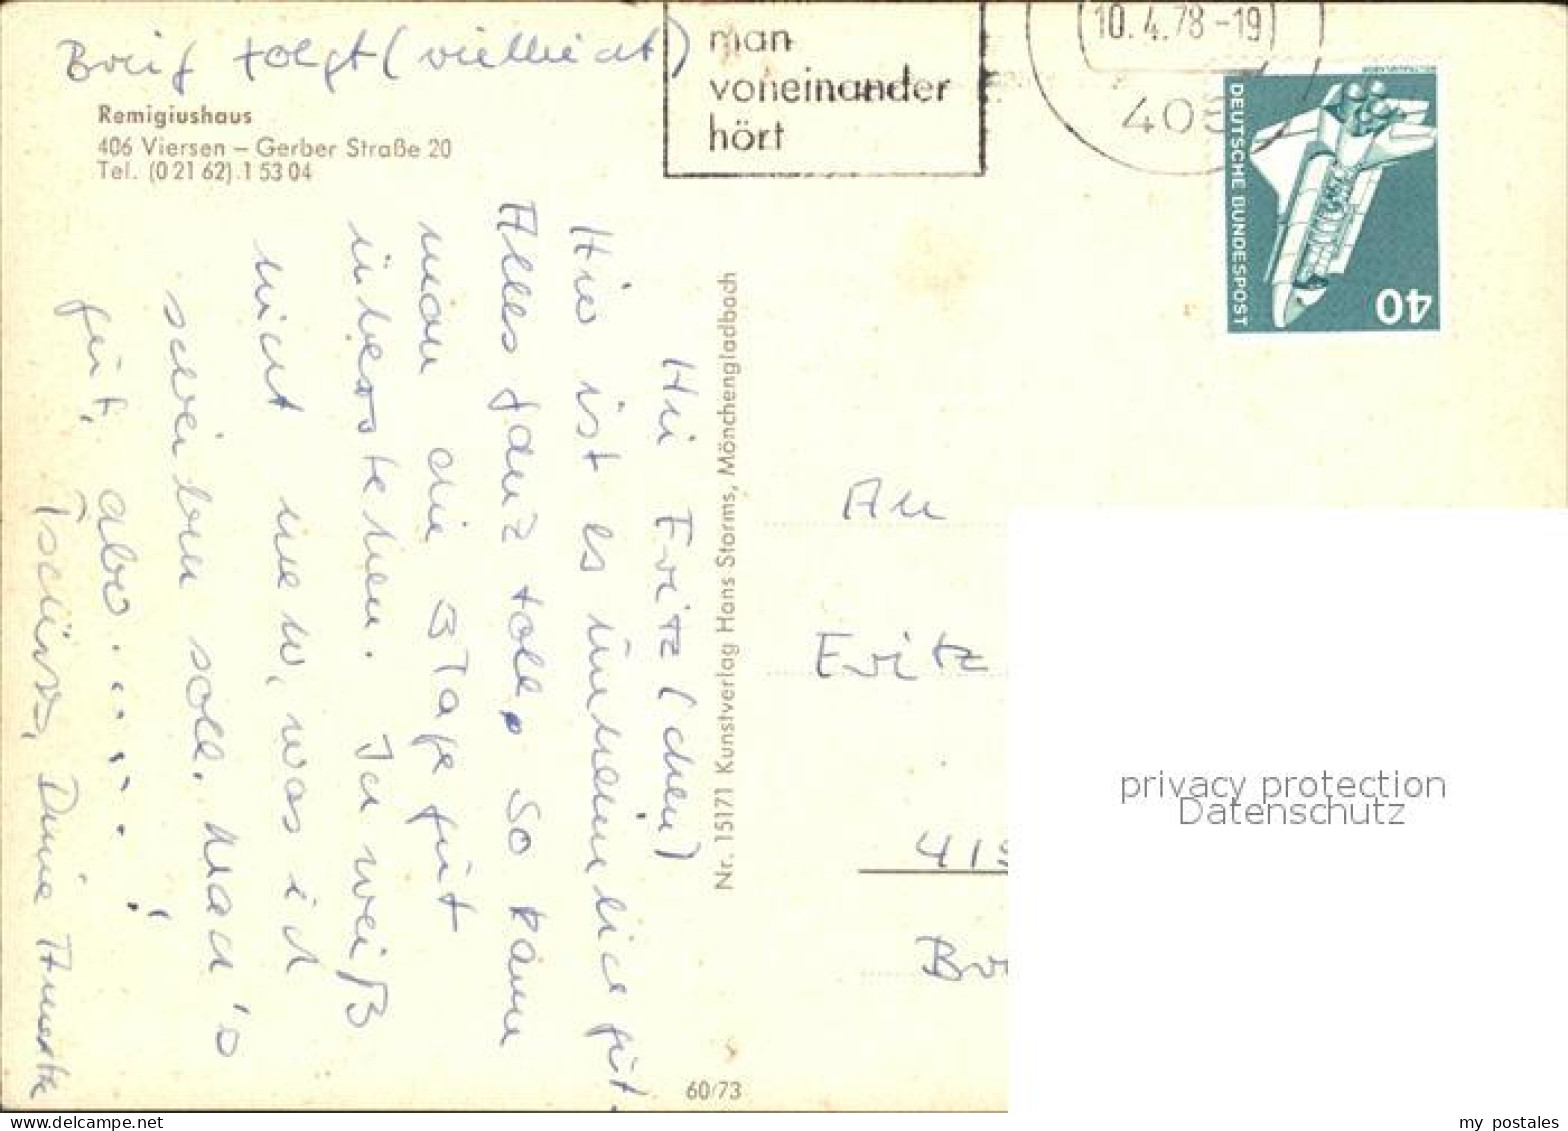 Breif folgt (vielleicht)
Remigiushaus
406 Viersen – Gerber Straße 20
Tel. (0 21 62) 1 53 04
man
voneinander
hört
10.4.78-19
406
DEUTSCHE BUNDESPOST
40
Hii Fritz (chen)
Hier ist es unheimlich gut.
Alles ganz toll. So kann
man die 3 Tage gut
überstehen. Ich weiß
nicht mehr, was ich
schreiben soll. Mach's
gut, aber.....!
Tschüss, Deine
Nr. 15171 Kunstverlag Hans Storms, Mönchengladbach
60/73
An
Fritz
415
Br
privacy protection
Datenschutz
www.delcampe.net
my_postales